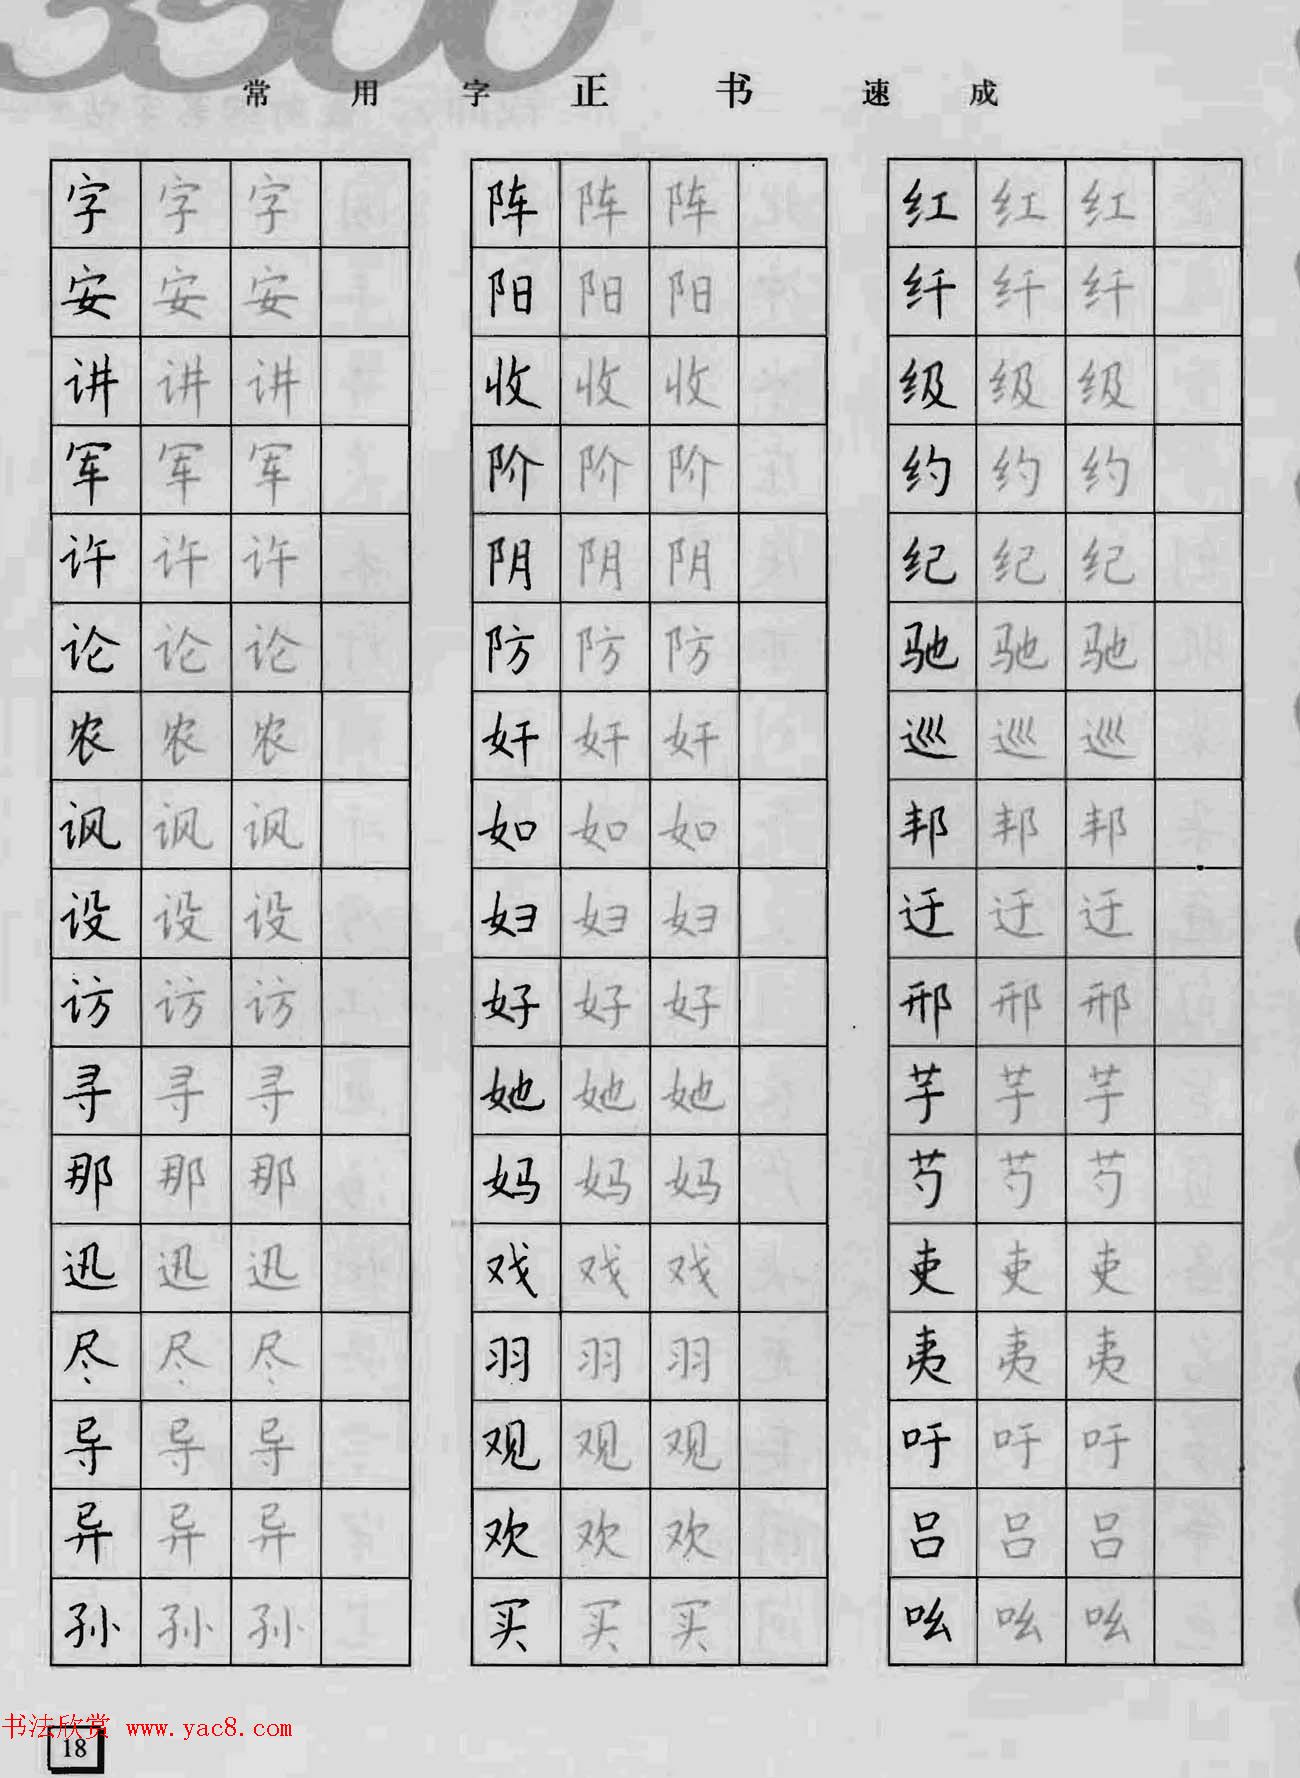 3500
常用字正书速成
字字字 阵阵阵 红红红
安安安 阳阳阳 纤纤纤
讲讲讲 收收收 级级级
军军军 阶阶阶 约约约
许许许 阴阴阴 纪纪纪
论论论 防防防 驰驰驰
农农农 奸奸奸 巡巡巡
讽讽讽 如如如 邦邦邦
设设设 妇妇妇 迂迂迂
访访访 好好好 邢邢邢
寻寻寻 她她她 芋芋芋
那那那 妈妈妈 芍芍芍
迅迅迅 戏戏戏 吏吏吏
尽尽尽 羽羽羽 夷夷夷
导导导 观观观 吁吁吁
异异异 欢欢欢 吕吕吕
孙孙孙 买买买 吆吆吆
书法欣赏 www.yac8.com
18